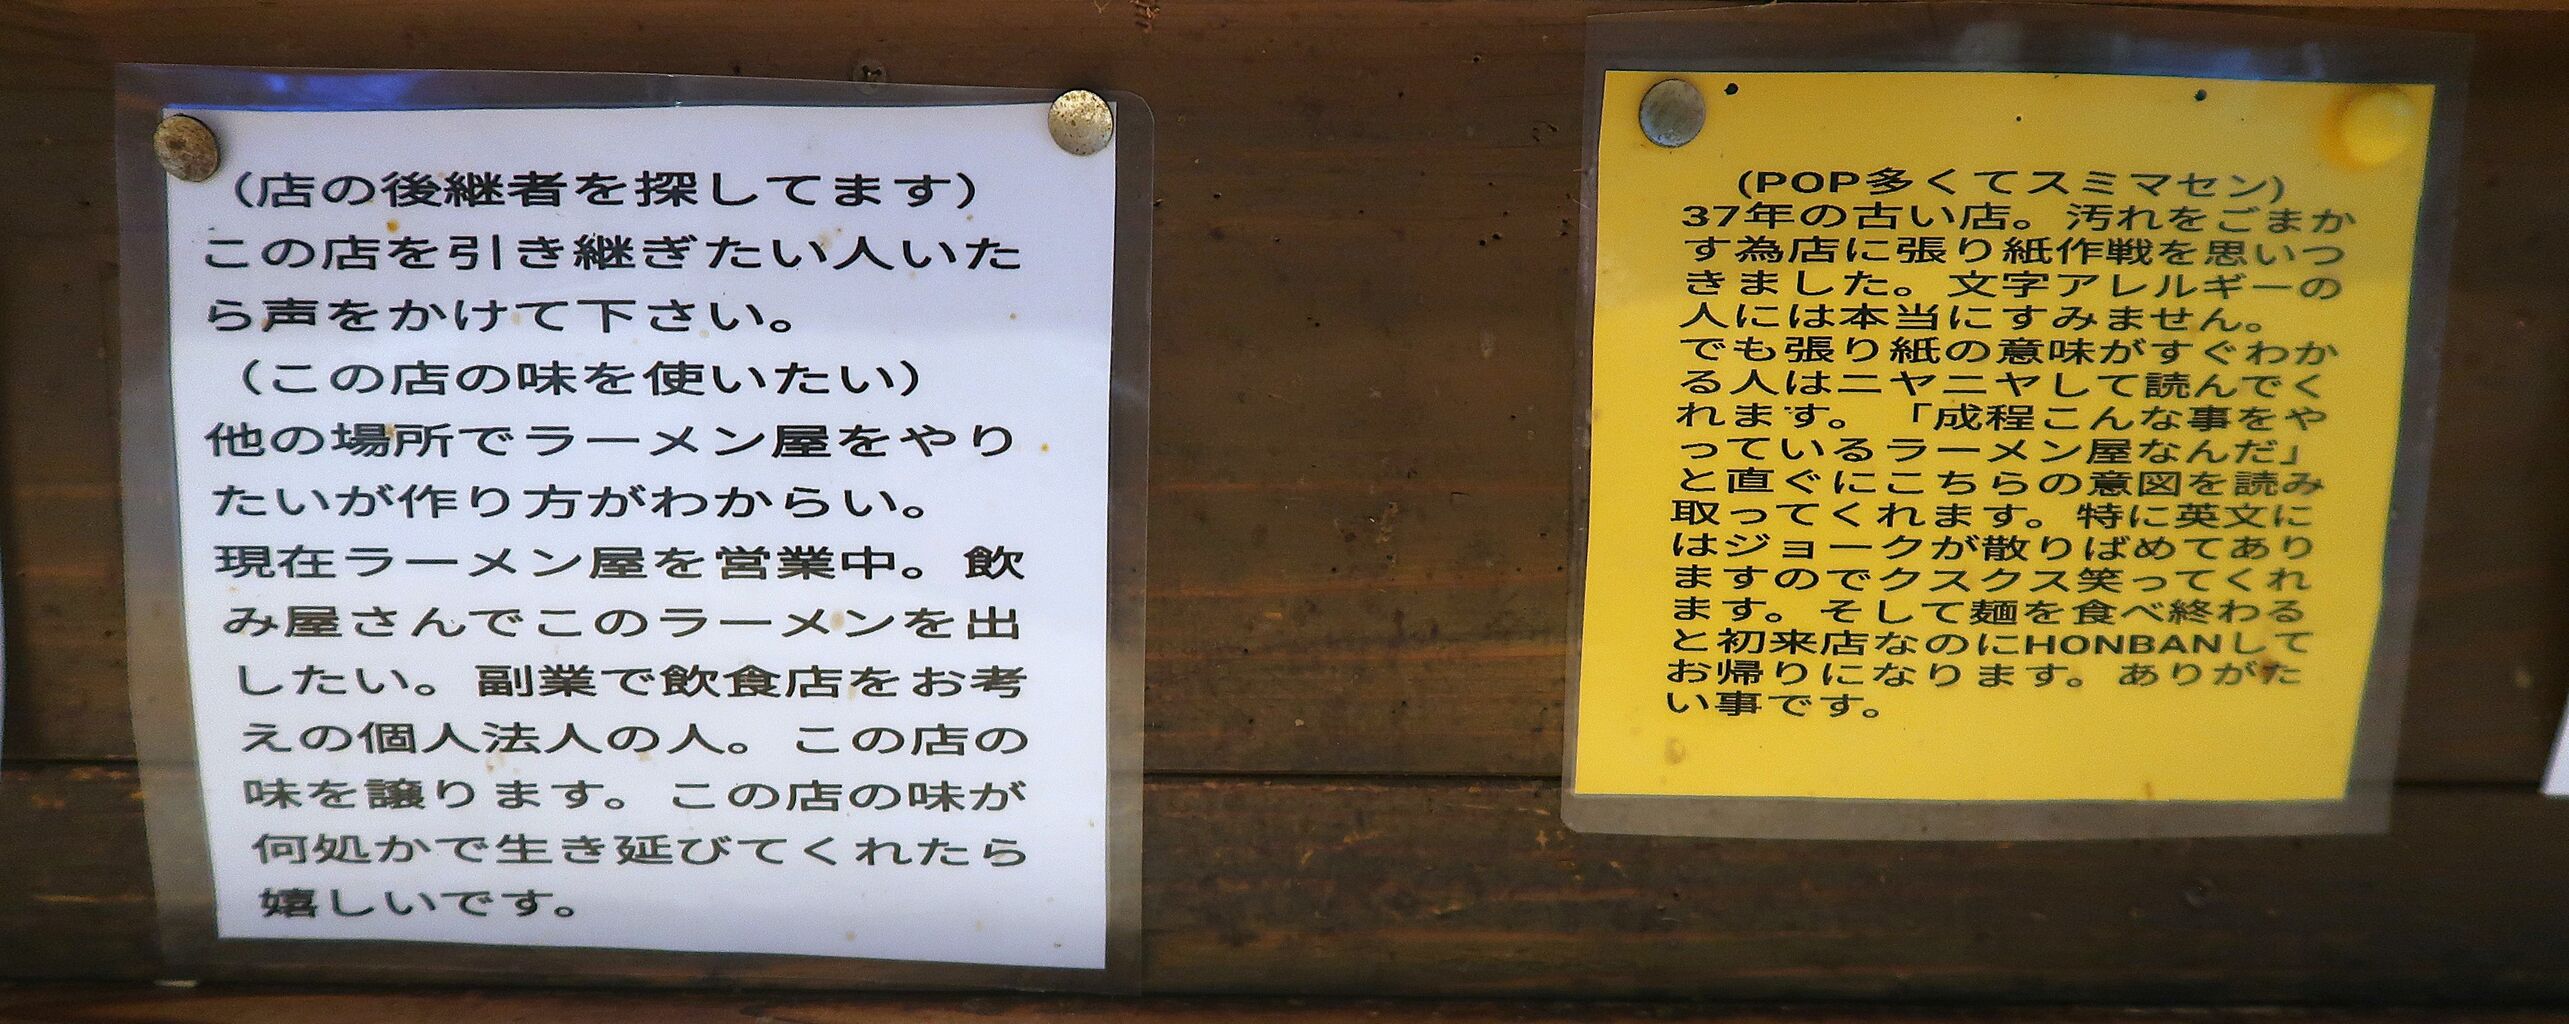 （店の後継者を探してます）
この店を引き継ぎたい人いた
ら声をかけて下さい。
（この店の味を使いたい）
他の場所でラーメン屋をやり
たいが作り方がわからい。
現在ラーメン屋を営業中。飲
み屋さんでこのラーメンを出
したい。副業で飲食店をお考
えの個人法人の人。この店の
味を譲ります。この店の味が
何処かで生き延びてくれたら
嬉しいです。
(POP多くてスミマセン)
37年の古い店。汚れをごまか
す為店に張り紙作戦を思いつ
きました。文字アレルギーの
人には本当にすみません。
でも張り紙の意味がすぐわか
る人はニヤニヤして読んでく
れます。「成程こんな事をや
っているラーメン屋なんだ」
と直ぐにこちらの意図を読み
取ってくれます。特に英文に
はジョークが散りばめてあり
ますのでクスクス笑ってくれ
ます。そして麺を食べ終わる
と初来店なのにHONBANして
お帰りになります。ありがた
い事です。